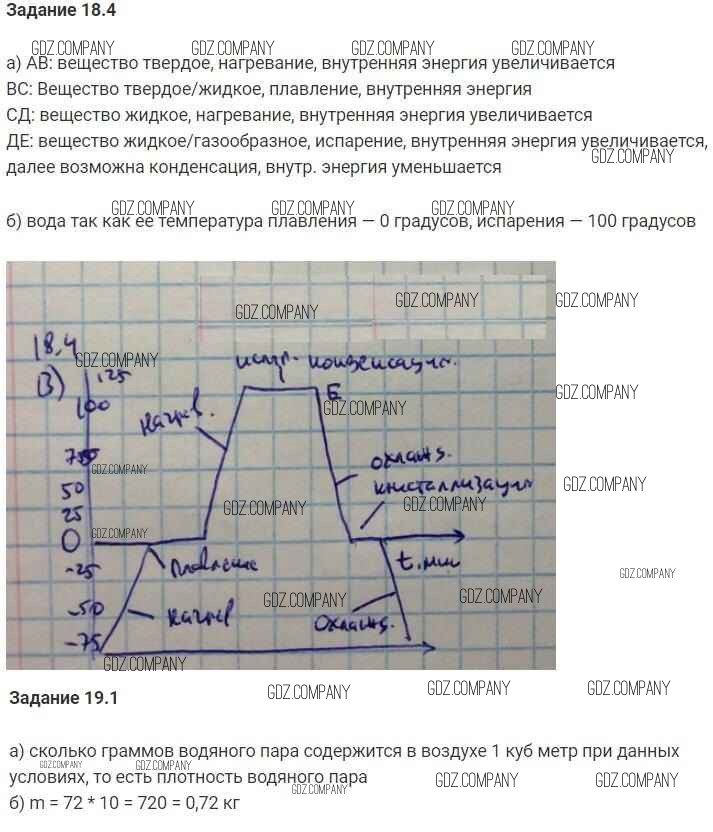 Задание 18.4
GDZ.COMPANY GDZ.COMPANY GDZ.COMPANY GDZ.COMPANY
а) АВ: вещество твердое, нагревание, внутренняя энергия увеличивается
ВС: Вещество твердое/жидкое, плавление, внутренняя энергия
СД: вещество жидкое, нагревание, внутренняя энергия увеличивается
ДЕ: вещество жидкое/газообразное, испарение, внутренняя энергия увеличивается,
GDZ.COMPANY
далее возможна конденсация, внутр. энергия уменьшается
GDZ.COMPANY GDZ.COMPANY GDZ.COMPANY
б) вода так как ее температура плавления — 0 градусов, испарения — 100 градусов
GDZ.COMPANY GDZ.COMPANY GDZ.COMPANY
18.4
GDZ.COMPANY
испр. конденсация.
В) 125
100
Е
GDZ.COMPANY GDZ.COMPANY
нагрев.
75
GDZ.COMPANY
охлажд.
50
кристаллизация
GDZ.COMPANY
25
GDZ.COMPANY GDZ.COMPANY
0
GDZ.COMPANY
-25
плавление
t, мин
GDZ.COMPANY
-50
нагрев
GDZ.COMPANY GDZ.COMPANY
охлажд.
-75
GDZ.COMPANY
Задание 19.1
GDZ.COMPANY GDZ.COMPANY GDZ.COMPANY
а) сколько граммов водяного пара содержится в воздухе 1 куб метр при данных
GDZ.COMPANY GDZ.COMPANY
условиях, то есть плотность водяного пара
GDZ.COMPANY GDZ.COMPANY GDZ.COMPANY
б) m = 72 * 10 = 720 = 0,72 кг